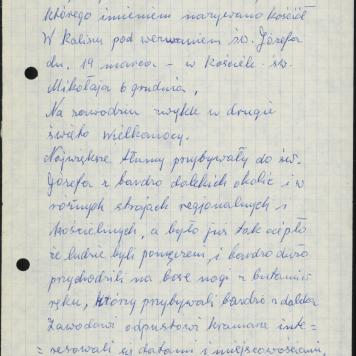 którego imieniem nazywano kościół
W Kaliszu pod wezwaniem św. Józefa
dn. 19 marca – w kościele św.
Mikołaja 6 grudnia,
Na zawodziu zwykle w drugie
święto Wielkanocy.
Największe tłumy przybywały do św.
Józefa z bardzo dalekich okolic i w
różnych strojach regjonalnych i
kościelnych, a było już tak ciepło
że ludzie byli pomęczeni i bardzo dużo
przychodzili na bose nogi z butami w
ręku, którzy przybywali bardzo z daleka
Zawodowi odpustowi kramarze inte=
= resowali się datami i miejscowościami,